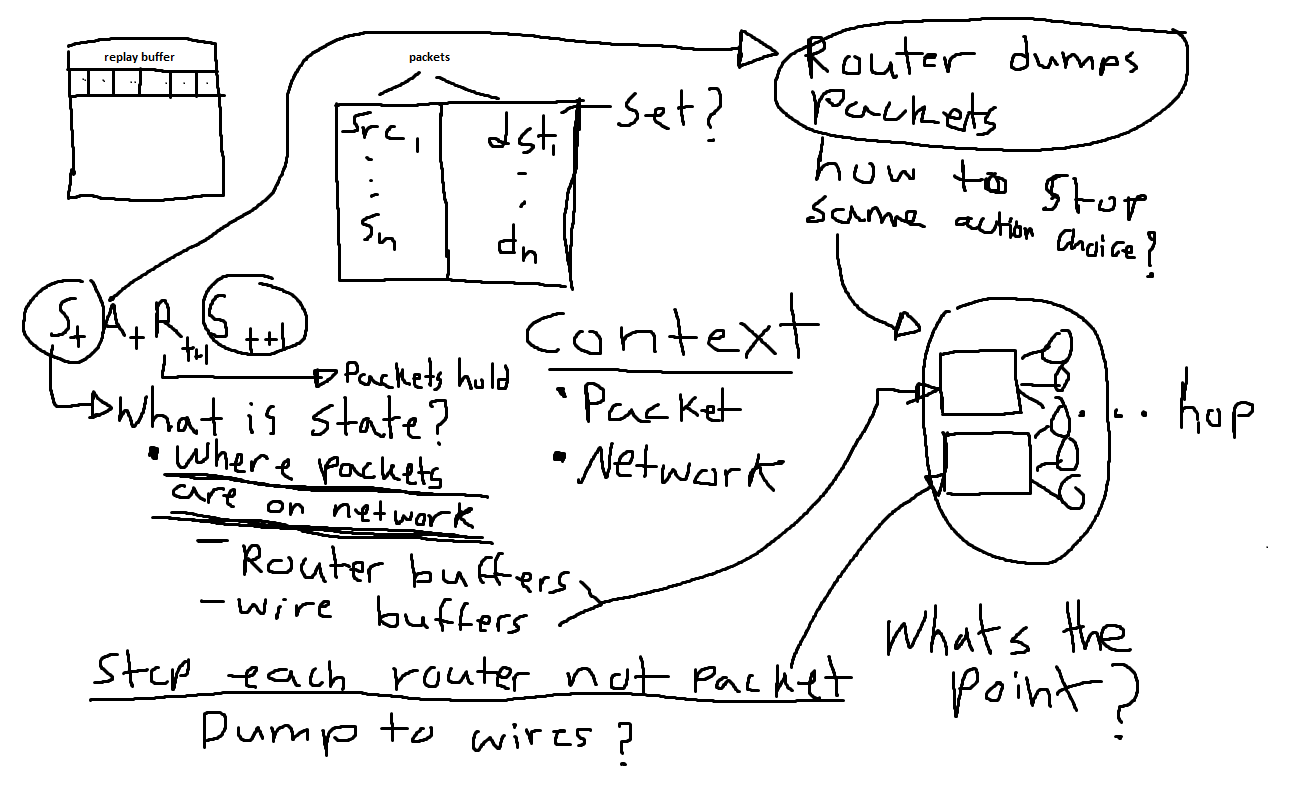 replay buffer
packets
Src1 dst1
Sn dn
Set?
Router dumps
packets
how to stop
same action choice?
St At Rt+1 St+1
Packets hold
What is state?
• Where packets
are on network
- Router buffers
- wire buffers
Context
• Packet
• Network
... hop
Step each router not packet
Dump to wires?
Whats the
point?